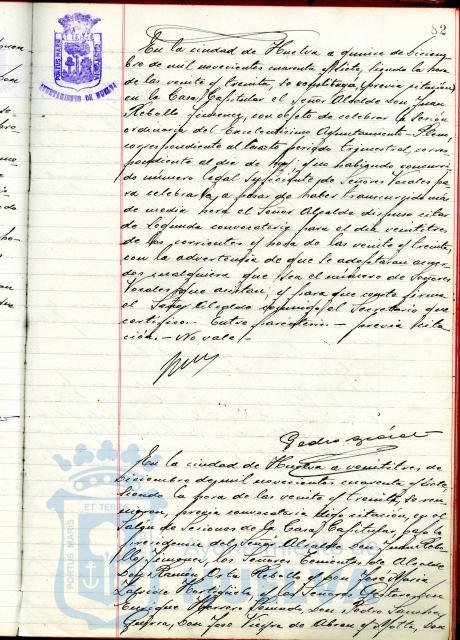 82
PORTUS MARIS
AYUNTAMIENTO DE HUELVA
En la ciudad de Huelva a quince de diciem-
bre de mil novecientos cuarenta y siete, siendo la hora
de las veinte y treinta, se constituyó (previa citación)
en la Casa Capitular el Señor Alcalde Don Juan
Rebollo Jimenez, con objeto de celebrar la sesión
ordinaria del Excelentísimo Ayuntamiento Pleno,
correspondiente al cuarto periodo trimestral, corres-
pondiente al día de hoy, y no habiendo concurri-
do número legal suficiente de Señores Vocales pa-
ra celebrarla, a pesar de haber transcurrido más
de media hora el Señor Alcalde dispuso citar
de segunda convocatoria para el día veintitres
de los corrientes y hora de las veinte y treinta,
con la advertencia de que se adoptaran acuer-
dos cualquiera que sea el número de Señores
Vocales que asistan; y para que conste firma
el Señor Alcalde conmigo el Secretario que
certifico. Entre parentesis. — previa cita-
ción. — No vale. —
Pedro
En la ciudad de Huelva a veintitres de
Diciembre de mil novecientos cuarenta y siete
siendo la hora de las veinte y treinta, se reu-
nieron, previa convocatoria y citación, en el
Salón de Sesiones de la Casa Capitular, bajo la
Presidencia del Señor Alcalde Don Juan Rebo-
llo Jimenez, los Señores Tenientes de Alcalde
Don Ramón Rebollo y Don José María
y los Señores Gestores Don
Enrique, Don Pedro Sanchez
Guerra, Don José de Abreu y, Don
Ayuntamiento de
HUELVA
PORTUS MARIS ET TER